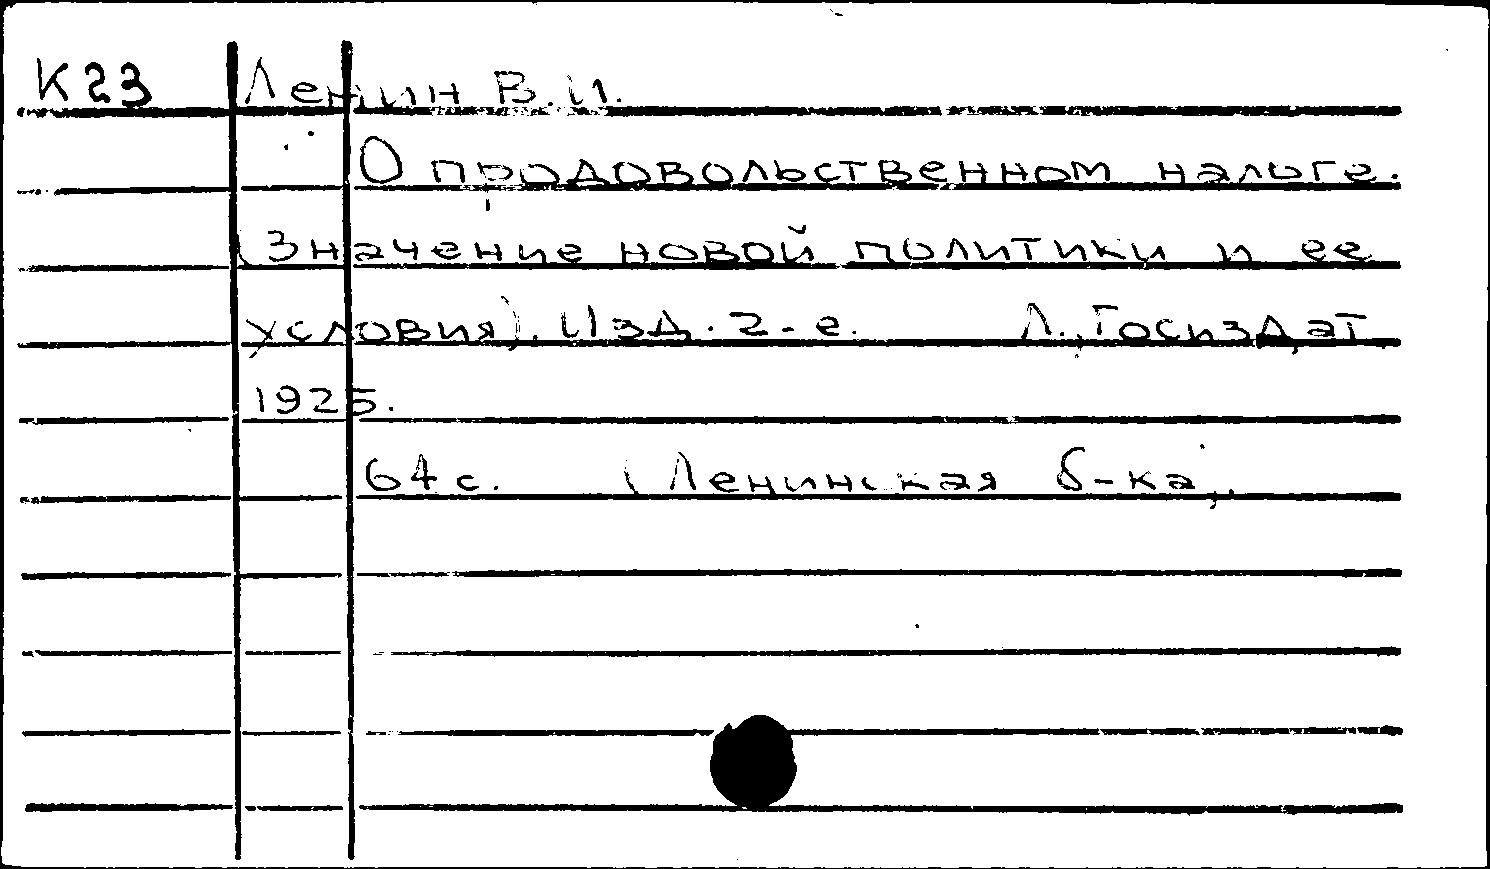 К23 Ленин В.И.
О продовольственном налоге.
(Значение новой политики и ее
условия). Изд. 2-е. Л., Госиздат
1925.
64 с. (Ленинская б-ка).